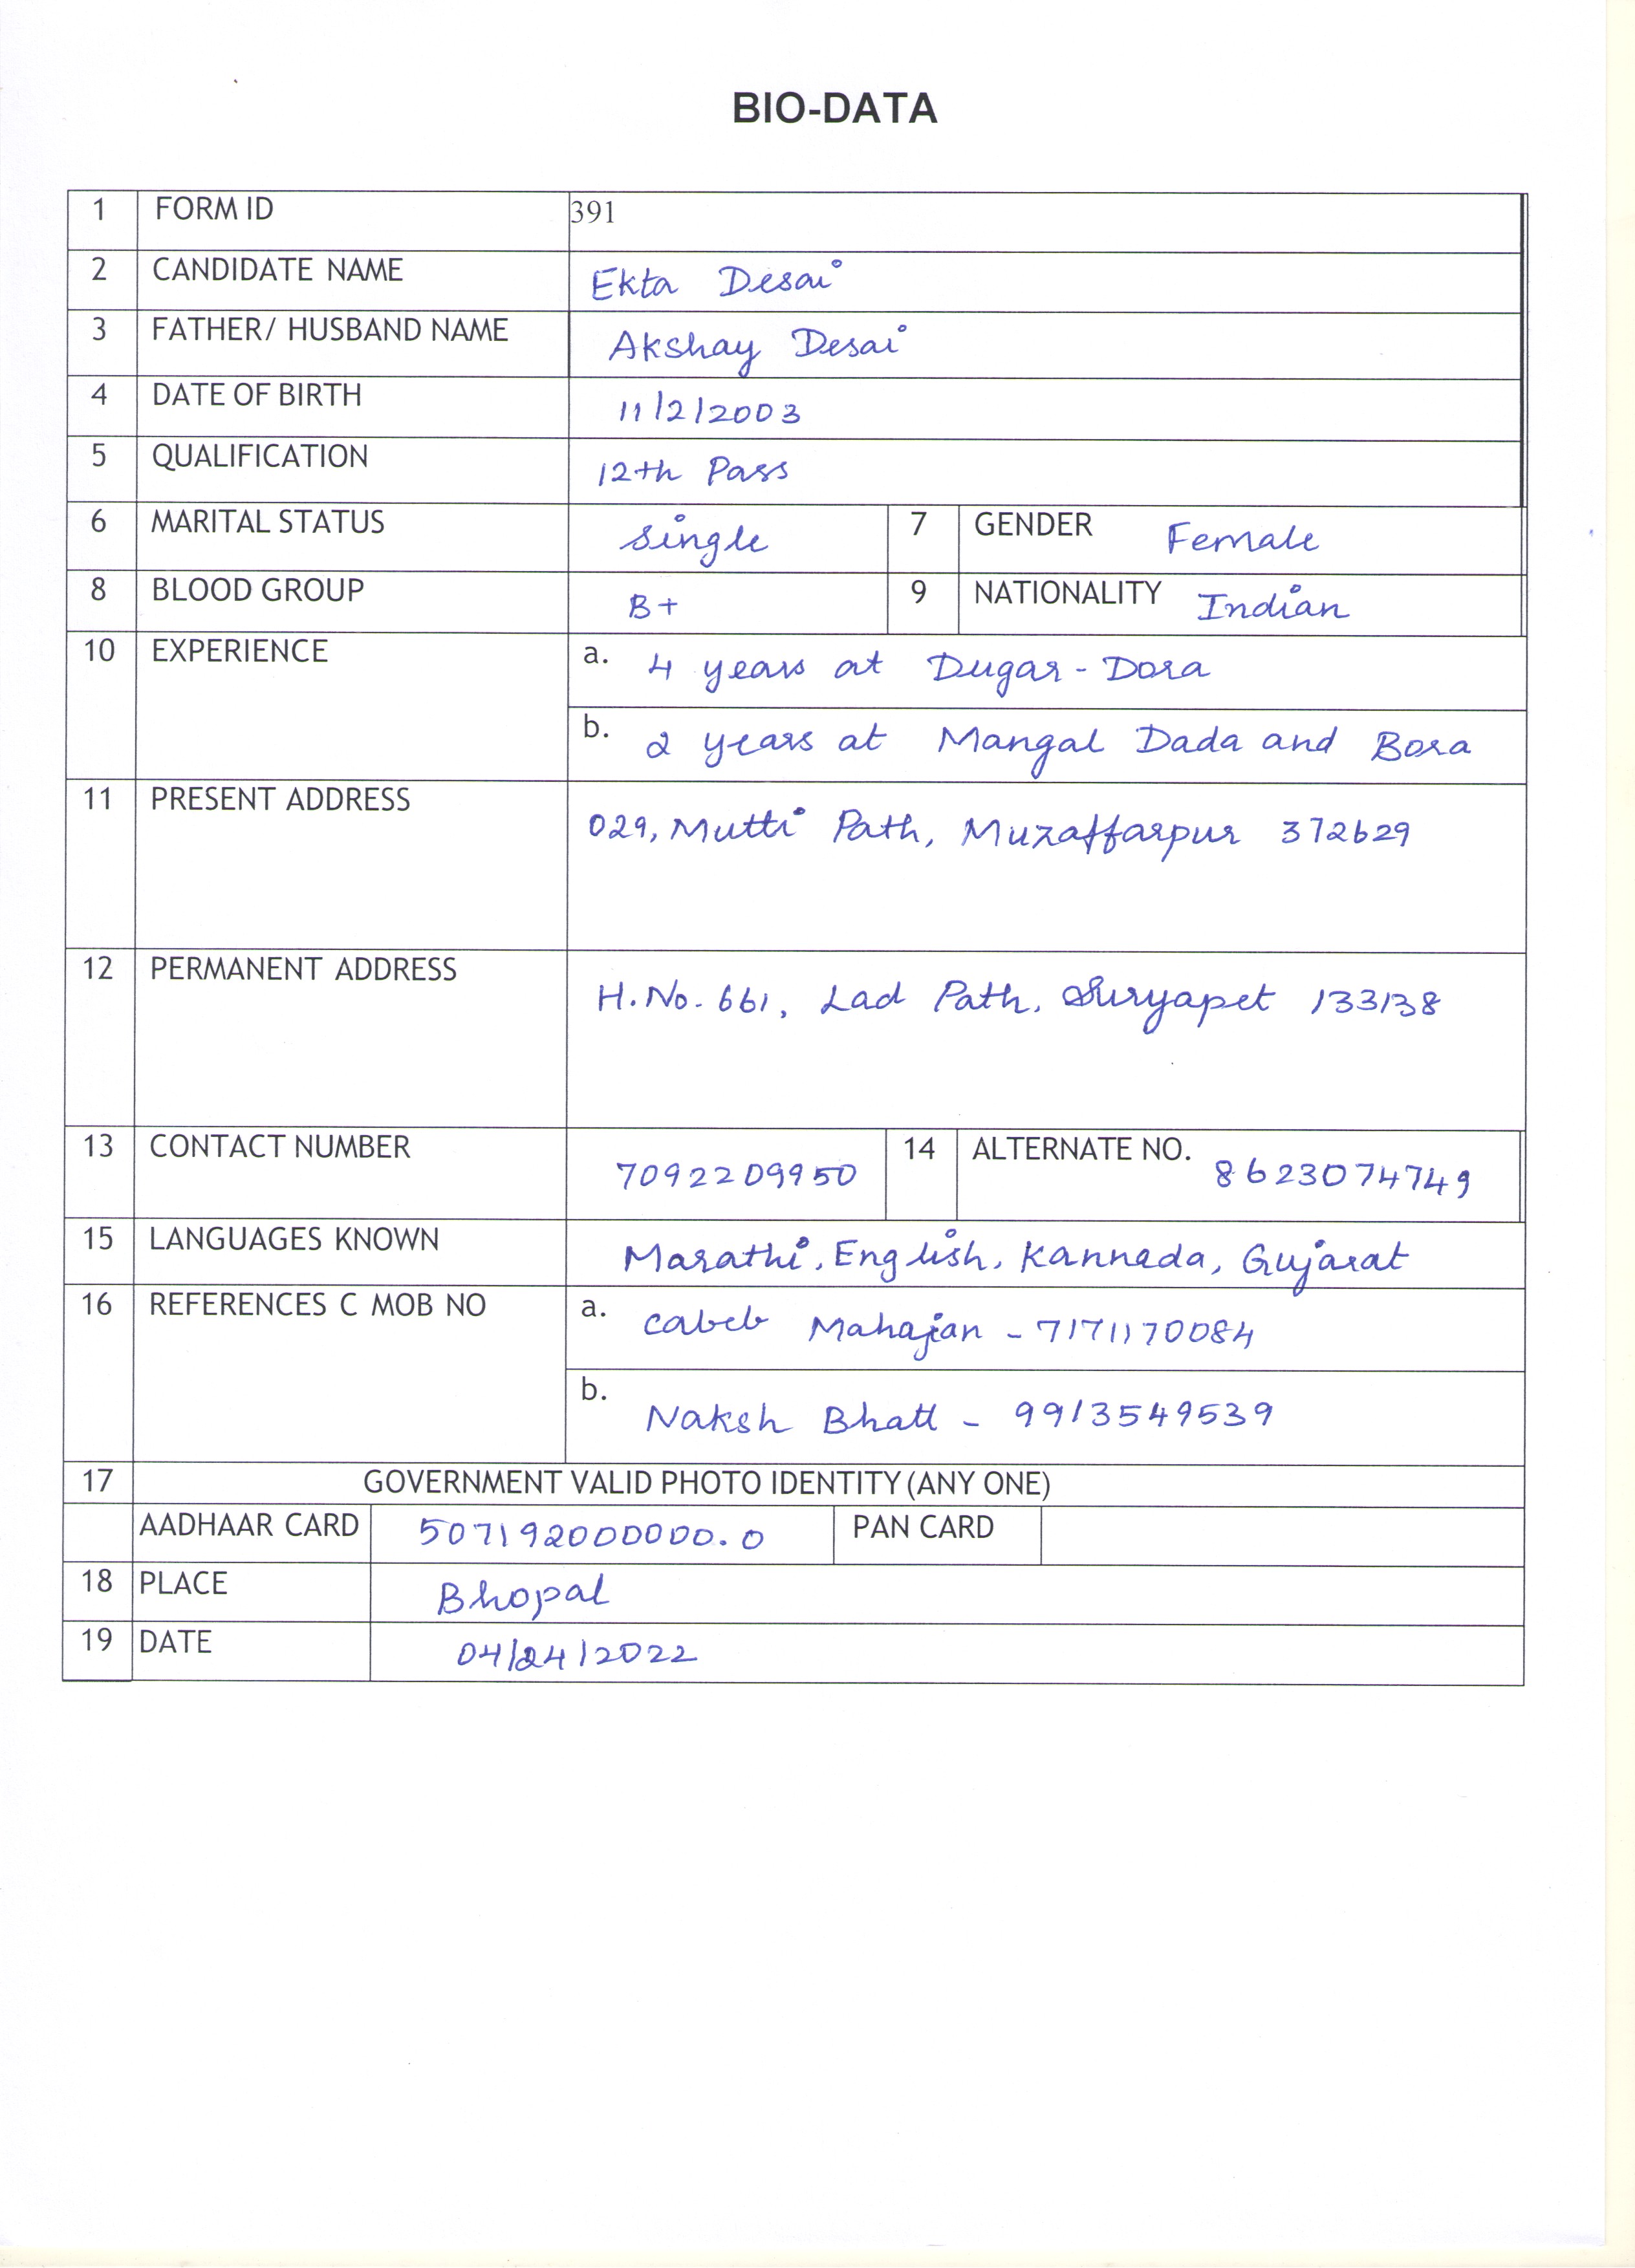 BIO-DATA
1 FORM ID 391
2 CANDIDATE NAME Ekta Desai
3 FATHER/ HUSBAND NAME Akshay Desai
4 DATE OF BIRTH 11/2/2003
5 QUALIFICATION 12th Pass
6 MARITAL STATUS Single 7 GENDER Female
8 BLOOD GROUP B+ 9 NATIONALITY Indian
10 EXPERIENCE a. 4 years at Dugar-Dora
b. 2 years at Mangal Dada and Bora
11 PRESENT ADDRESS 029, Mutti Path, Muzaffarpur 372629
12 PERMANENT ADDRESS H.No. 661, Lad Path, Suryapet 133138
13 CONTACT NUMBER 7092209950 14 ALTERNATE NO. 8623074749
15 LANGUAGES KNOWN Marathi, English, Kannada, Gujarat
16 REFERENCES C MOB NO a. Cabeb Mahajan - 7171170084
b. Naksh Bhatt - 9913549539
17 GOVERNMENT VALID PHOTO IDENTITY (ANY ONE)
AADHAAR CARD 507192000000.0 PAN CARD
18 PLACE Bhopal
19 DATE 04/24/2022